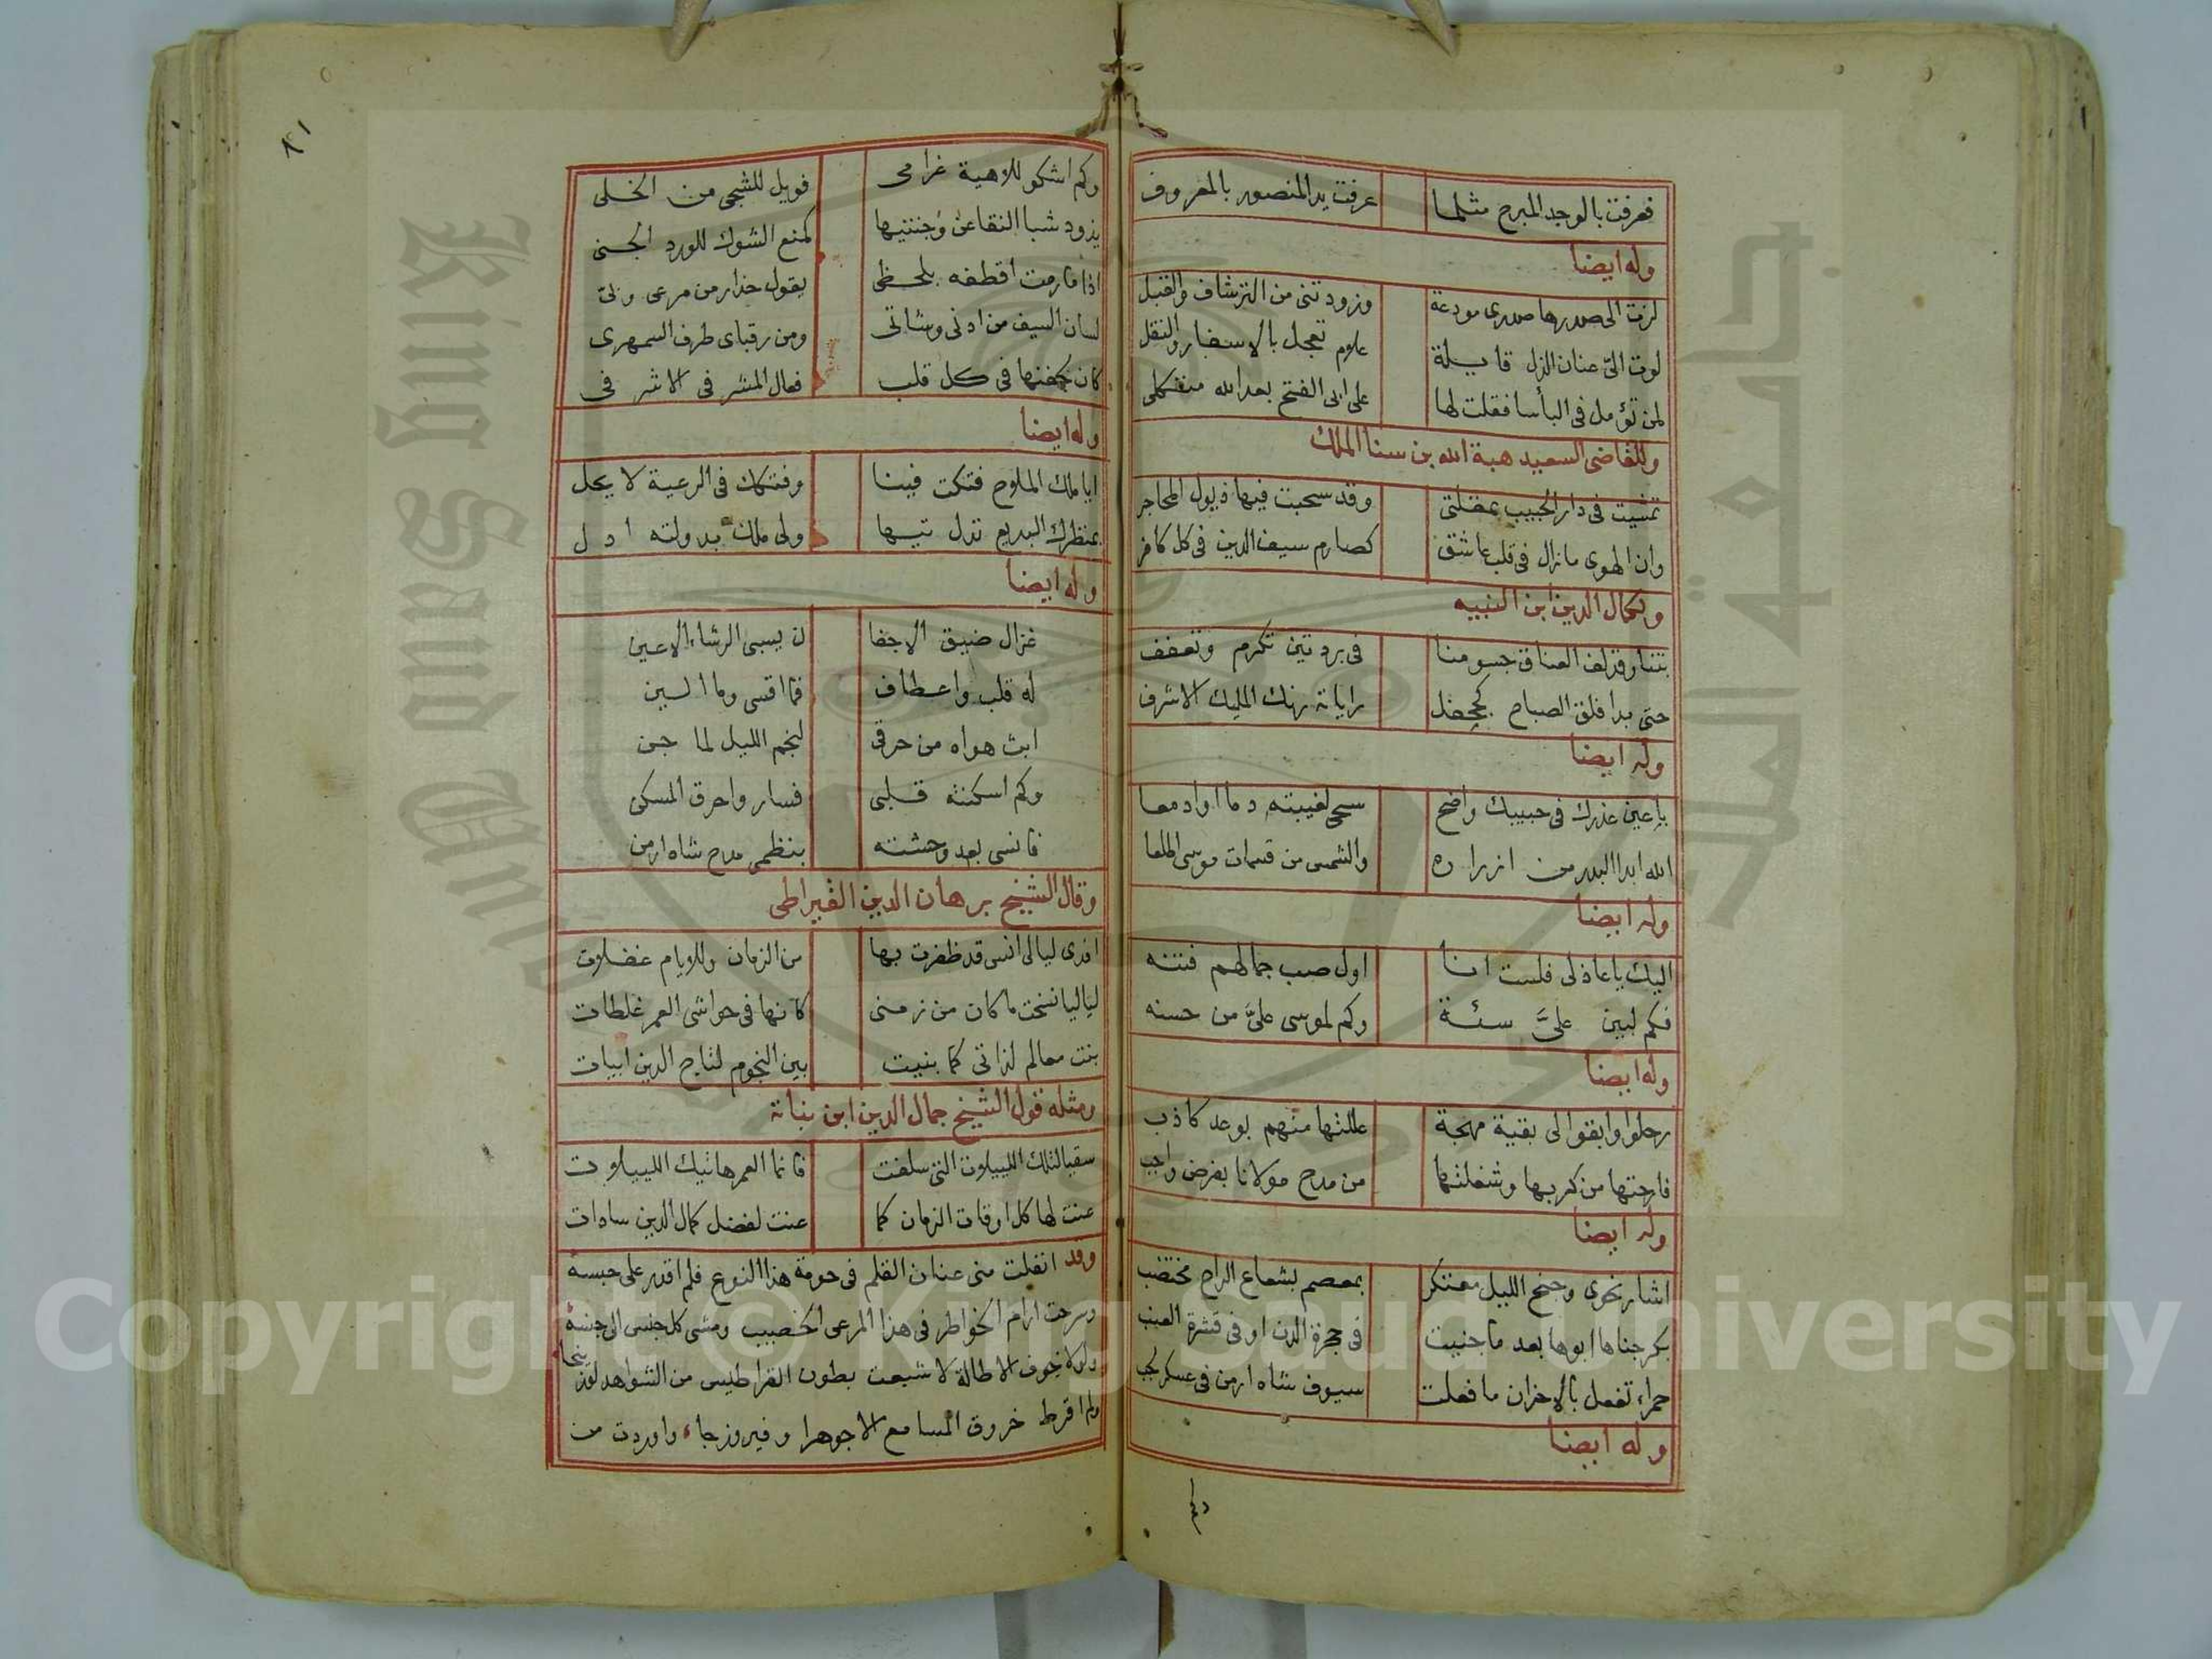 فعرفت بالوجد المبرح مثلما عرفت يد المنصور بالمعروف
وله ايضا
لزت الى صدرها صدري مودعة وزودتني من الترشاف والقبل
لوت اليّ عنان الذل قايلة علام تعجل بالاسفار والنقل
لمن تؤمل في البأسا فقلت لها على ابى الفتح بعد الله متكلى
وللقاضى السعيد هبة الله بن سنا الملك
تمشيت في دار الحبيب بمقلتى وقد سحبت فيها ذيول المحاجر
وان الهوى مازال في قلب عاشق كصارم سيف الدين في كل كافر
ولكمال الدين ابن النبيه
بتنا وقد لف العناق جسومنا في بردتين تكرم وتعفف
حتى بدا فلق الصباح كجحفل راياته رنك المليك الاشرف
وله ايضا
يا عين عذرك في حبيبك واضح سحى لغيبته دما او ادمعا
الله ابدا البدر من ازراره والشمس من قسمات موسى اطلعا
وله ايضا
اليك يا عاذلى فلست انا اول صب جمالهم فتنه
فكم لبين عليَّ سئة وكم لموسى عليَّ من حسنه
وله ايضا
رحلوا وابقوا لى بقية مهجة عللتها منهم بوعد كاذب
فارحتها من كربها وشغلتها من مدح مولانا بفرض واجب
وله ايضا
اشار نحوى وجنح الليل معتكر بمعصم بشعاع الراح مختضب
بكر جناها ابوها بعد ما جنيت في حجرة الدن او في قشرة العنب
حمراء تفعل بالاحزان ما فعلت سيوف شاه ارمن في عسكر لجب
وله ايضا
وكم
٨١
وكم اشكو للاهية غرامى فويل للشجى من الخلى
يذود شبا القنا عن وجنتيها كمنع الشوك للورد الجنى
اذا ما رمت اقطفه بلحظى يقول حذار من مرعى وبى
لسان السيف من ادنى وشاتى ومن رقباى طرف السمهرى
كان بجفنها في كل قلب فعال المشرفى الاشرفى
وله ايضا
ايا ملك الملاح فتكت فينا وفتكك في الرعية لا يحل
بمنظرك البديع تدل تيها ولى ملك بدولته ادل
وله ايضا
غزال ضيق الاجفا ن يسبى الرشاء الاعين
له قلب واعطاف فما اقسى وما الين
ابث هواه من حرقى لنجم الليل لما جن
وكم اسكنته قلبى فسار واحرق المسكن
فانسى بعد وحشته بنظمى مدح شاه ارمن
وقال الشيخ برهان الدين القيراطى
افدى ليالى انس قد ظفرت بها من الزمان وللايام غفلات
لياليا نسخت ما كان من زمنى كانها في حواشى العمر غلطات
بنت معالم لذاتى كما بنيت بين النجوم لتاج الدين ابيات
ومثله قول الشيخ جمال الدين ابن نباتة
سقيا لتلك اللييلات التى سلفت فانما العمر هاتيك اللييلات
عنت لها كل اوقات الزمان كما عنت لفضل كمال الدين سادات
وقد انفلت منى عنان القلم في حومة هذا النوع فلم اقدر على حبسه
وسرحت ارام الخواطر في هذا المرعى الخصيب ومشى كل جنس الى جنسه
ولولا خوف الاطالة لاشبعت بطون القراطيس من الشواهد لوزينجا
ولم اقرط خروق المسامع الا جوهرا وفيروزجاء واوردت من
Copyright © King Saud University